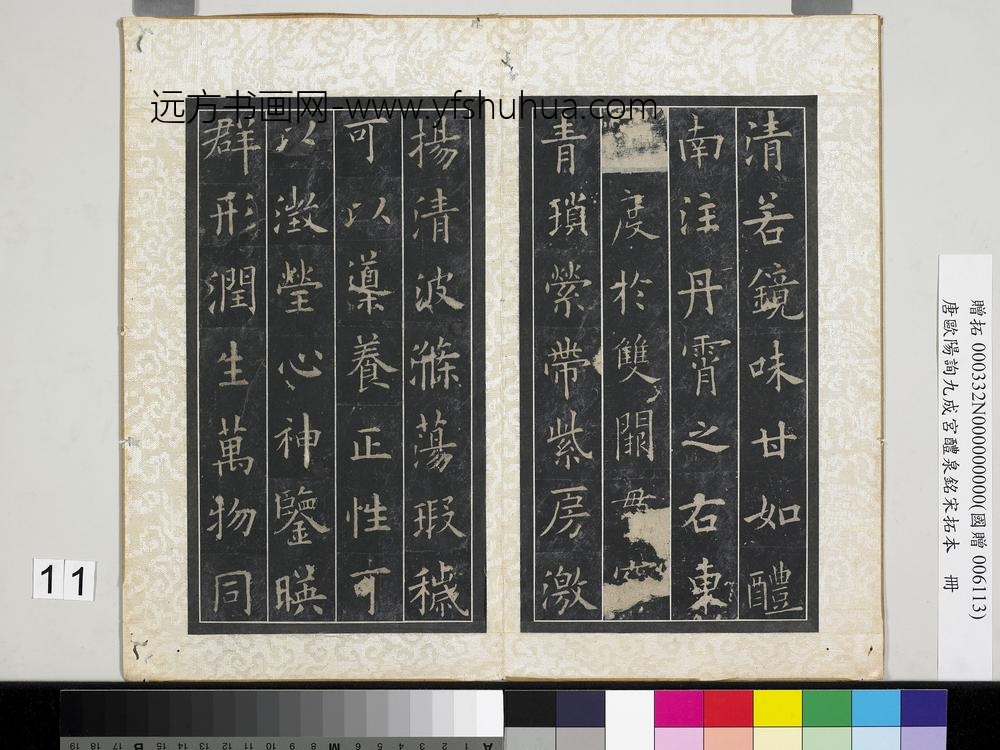 远方书画网-www.yfshuhua.com
清若鏡味甘如醴
南注丹霄之右東
度於雙闕
青瑣縈帶紫房激
揚清波滌蕩瑕穢
可以導養正性可
以澂瑩心神鑒暎
群形潤生萬物同
贈拓 000332N000000000(國贈 006113)
唐歐陽詢九成宮醴泉銘宋拓本 冊
11
A 1 2 3 4 5 6 M 8 9 10 11 12 13 14 15 B 17 18 19